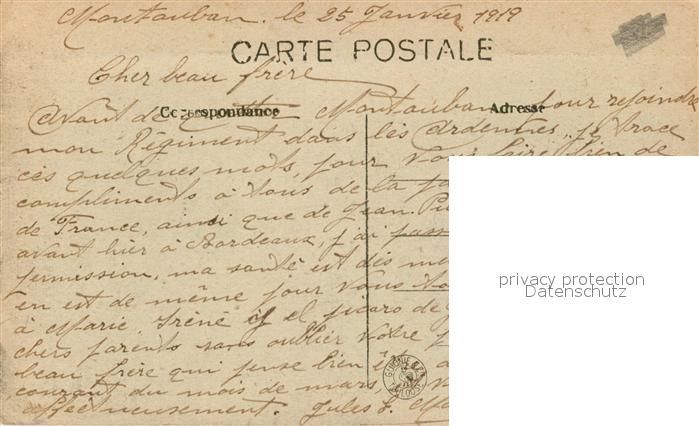 Montauban. le 25 Janvier 1919
CARTE POSTALE
Cher beau frère
Correspondance
Adresse
Avant de quitter Montauban pour rejoindre
mon Régiment dans les Ardennes, je trace
ces quelques mots, pour vous faire bien de
compliments à tous de la
de France, ainsi que de Jean.
avant hier à Bordeaux, j'ai
permission, ma santé est des
en est de même pour vous
à Marie, Irène et el picaro de
chers parents sans oublier votre
beau frère qui pense bien
courant du mois de mars,
affectueusement. Jules
privacy protection
Datenschutz